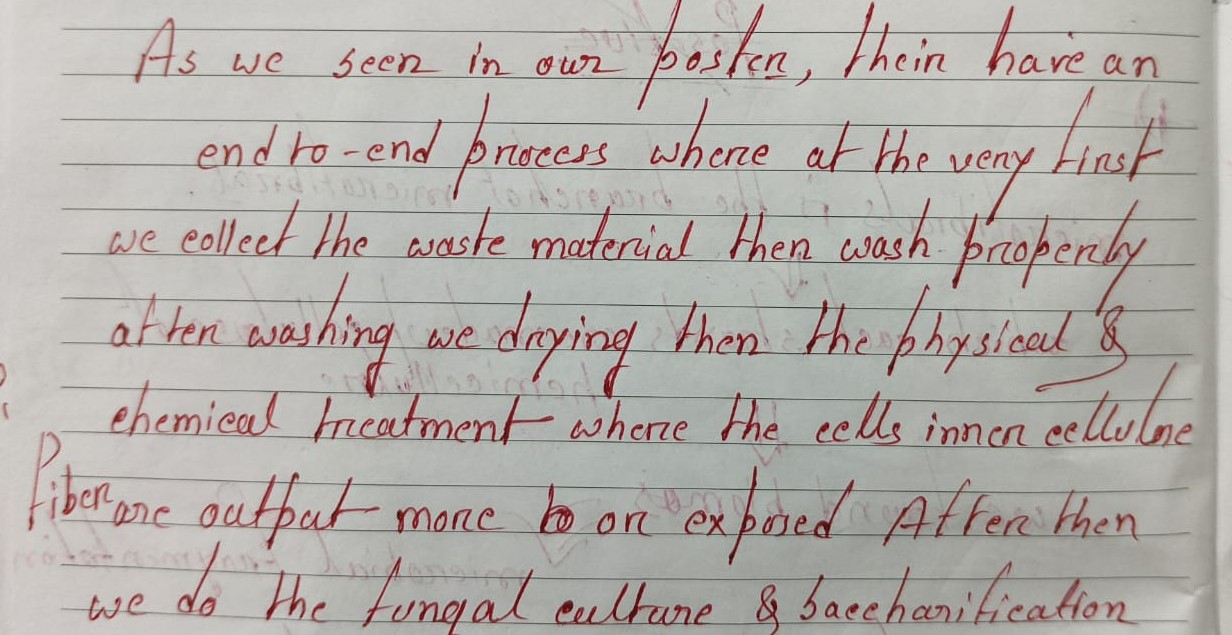 As we seen in our poster, their have an
end to-end process where at the very first
we collect the waste material then wash properly
after washing we drying then the physical &
chemical treatment where the cells inner cellulose
fiber are output more to or exposed After then
we do the fungal culture & saccharification